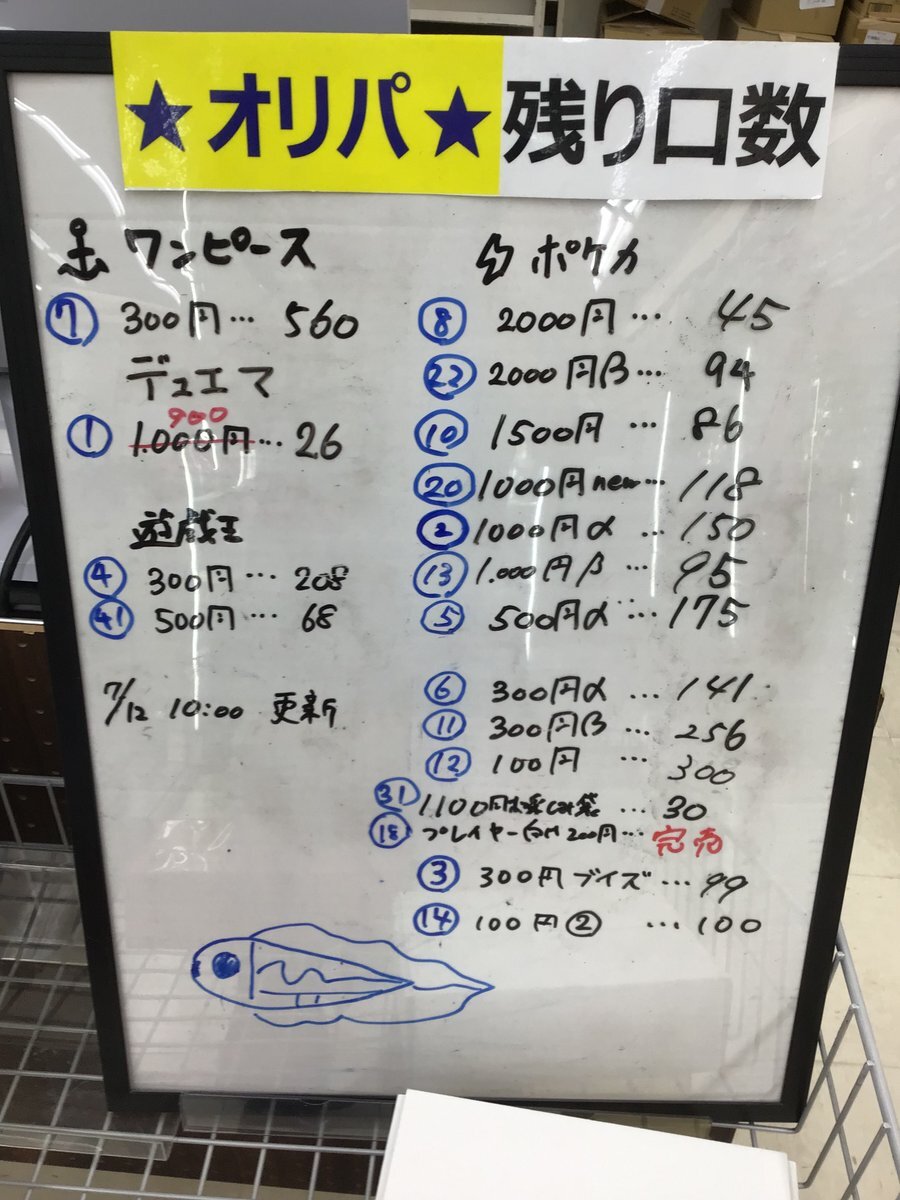 ★オリパ★残り口数
ワンピース
⑦ 300円… 560
デュエマ
900
① 1.000円… 26
遊戯王
④ 300円… 208
㊶ 500円… 68
7/12 10:00 更新
ポケカ
⑧ 2000円… 45
㉒ 2000円β… 94
⑩ 1500円… 86
⑳ 1000円new… 118
② 1000円α… 150
⑬ 1.000円β… 95
⑤ 500円α… 175
⑥ 300円α… 141
⑪ 300円β… 256
⑫ 100円… 300
㉛ 1100円お楽しみ袋… 30
⑱ プレイヤー向け200円… 完売
③ 300円ブイズ… 99
⑭ 100円②… 100